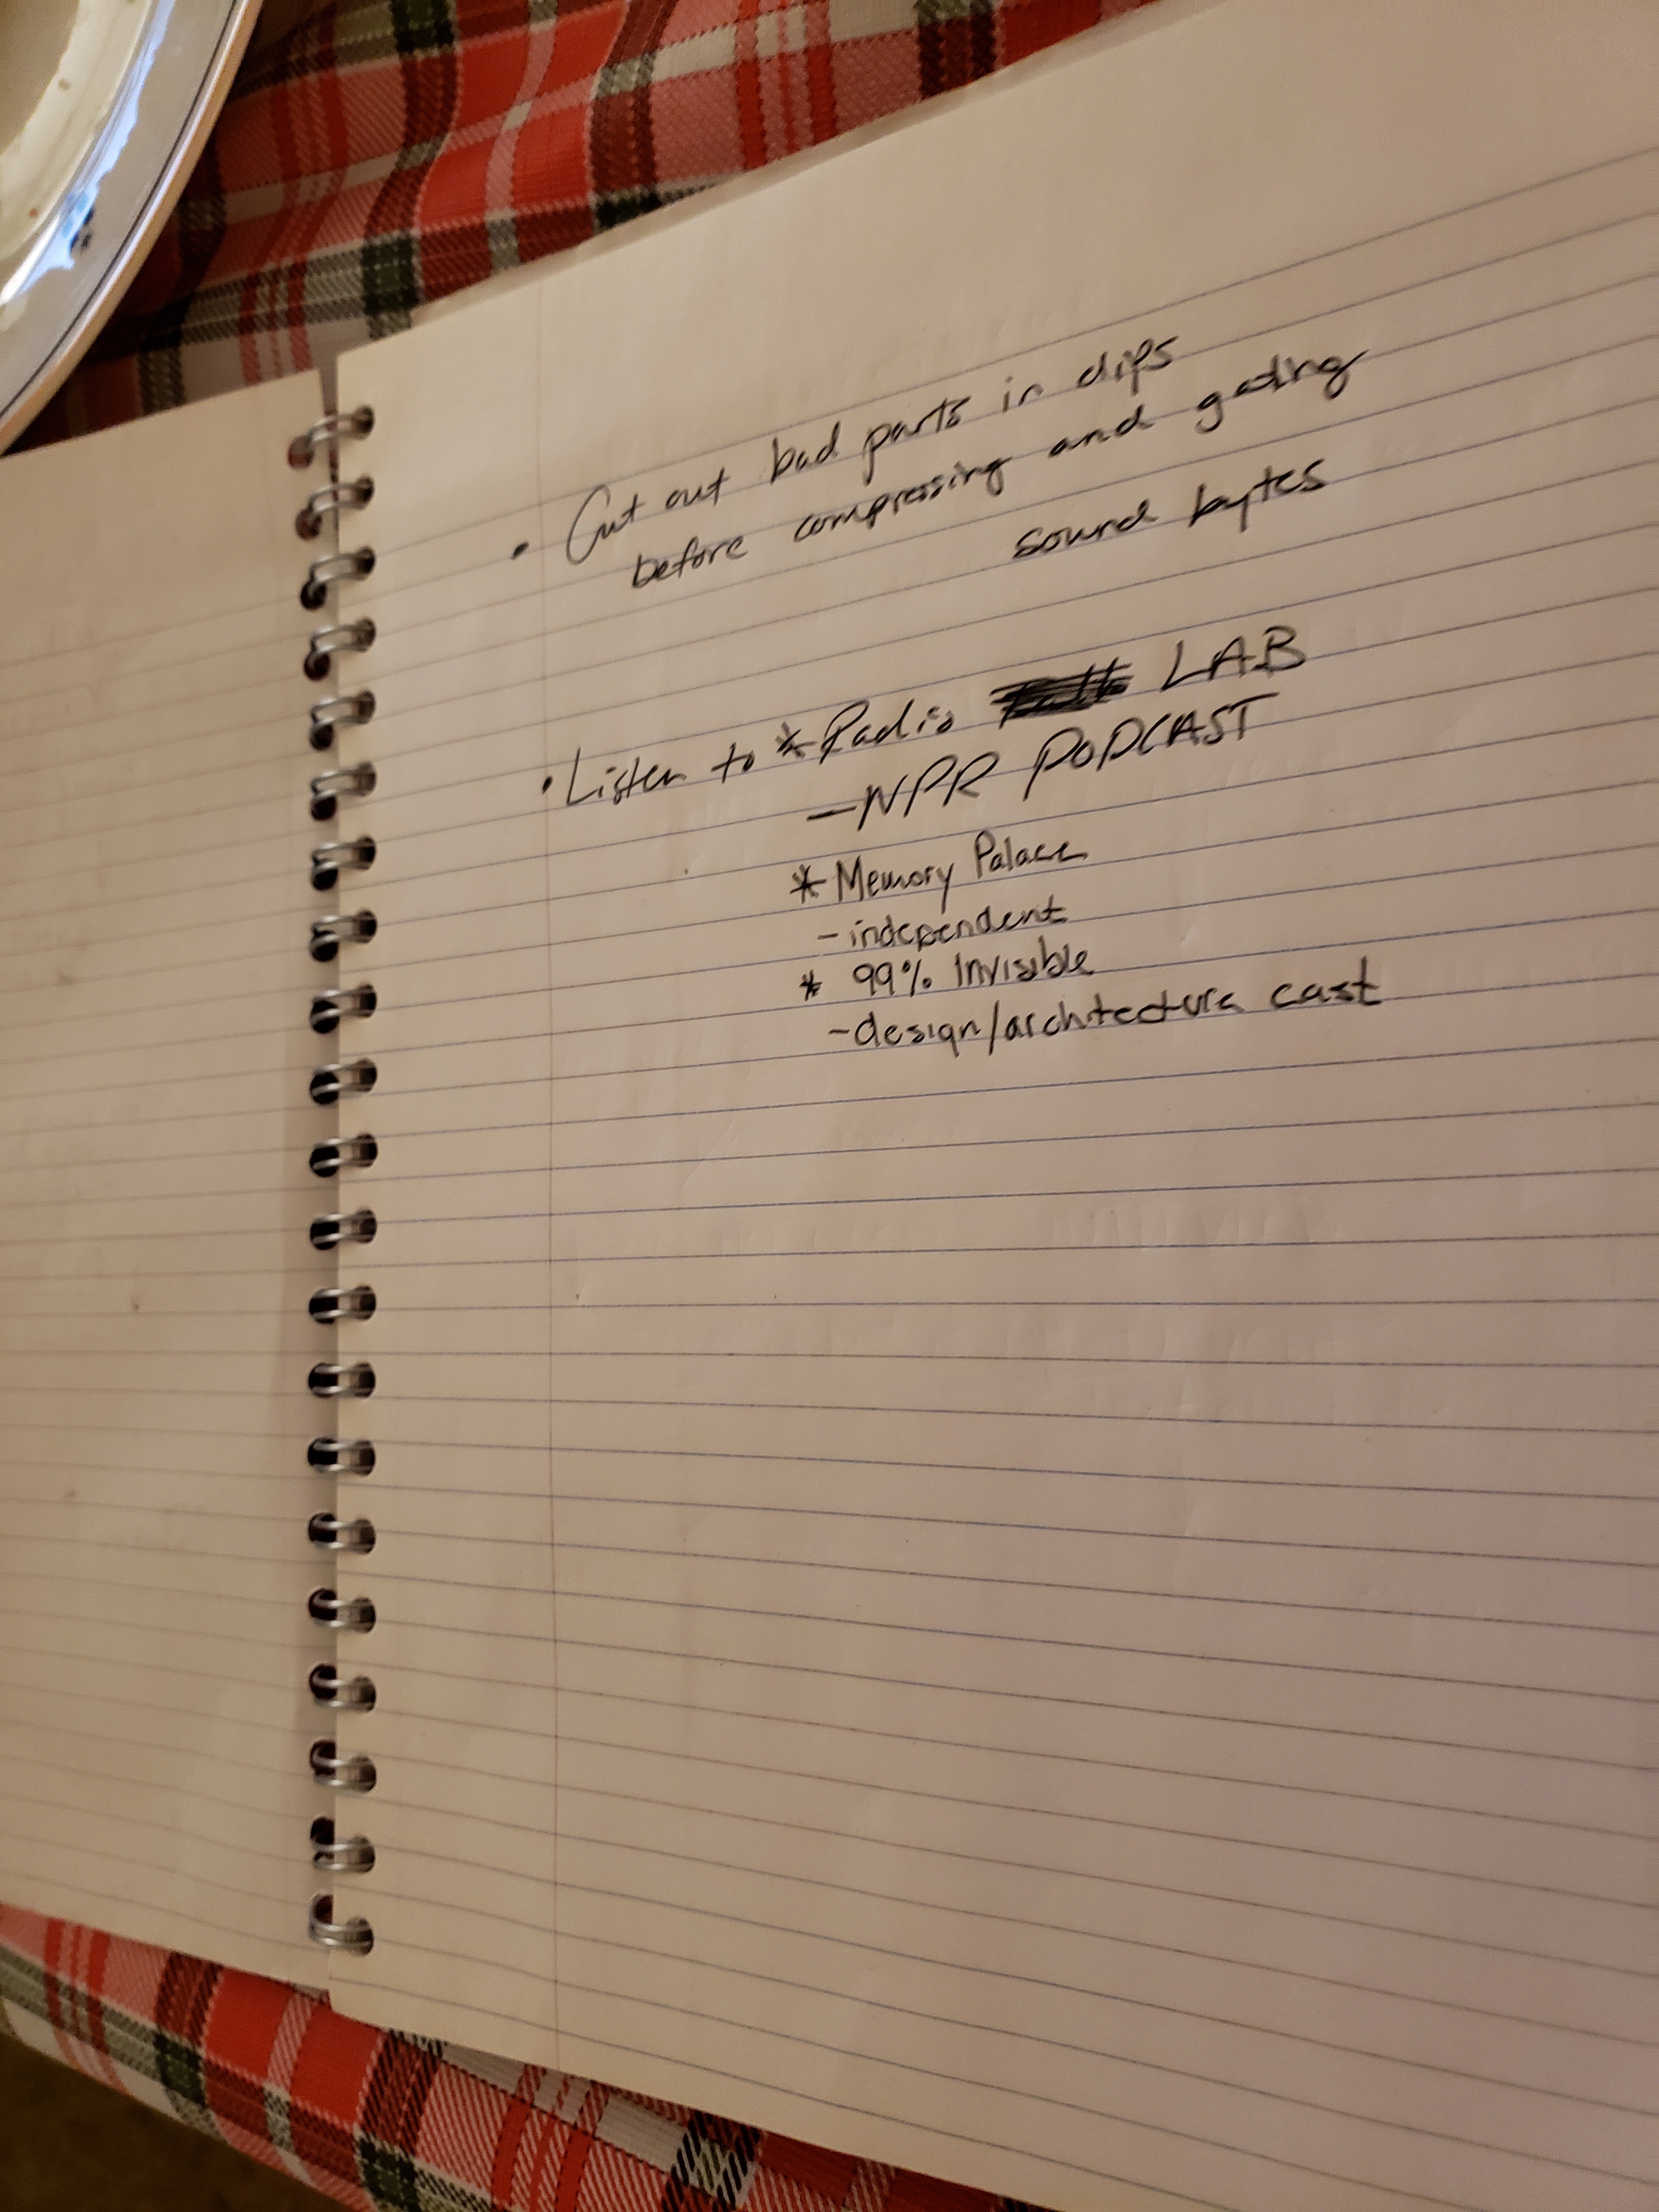 • Cut out bad parts in clips
before compressing and gating
sound bytes
• Listen to * Radio LAB
— NPR PODCAST
* Memory Palace
- independent
* 99% Invisible
- design/architecture cast